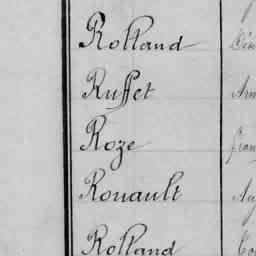 Rolland
Ruffet
Roze
Rouault
Rolland